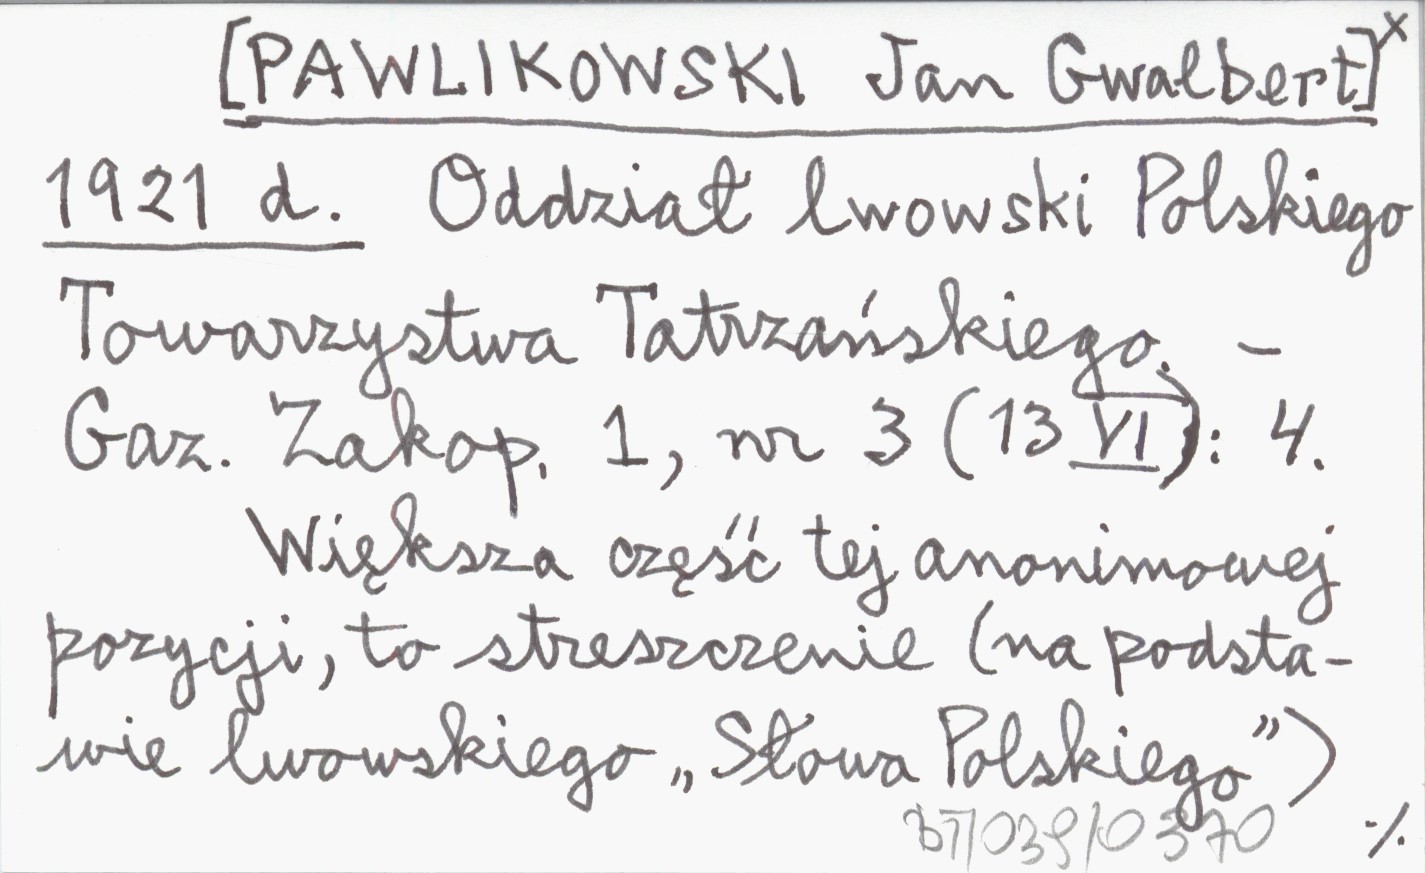 [PAWLIKOWSKI Jan Gwalbert]x
1921 d. Oddział lwowski Polskiego
Towarzystwa Tatrzańskiego. –
Gaz. Zakop. 1, nr 3 (13 VI): 4.
Większa część tej anonimowej
pozycji, to streszczenie (na podsta-
wie lwowskiego „Słowa Polskiego”)
BT/039/0370 ·/.